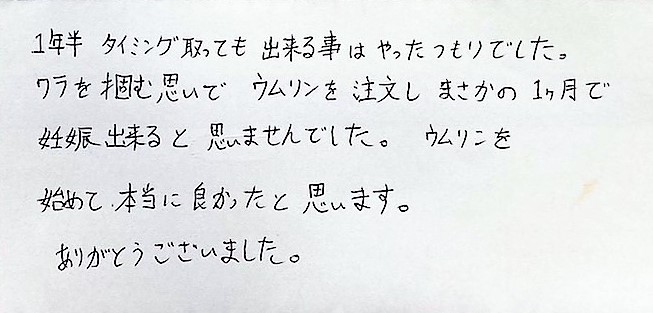 1年半 タイミング取っても 出来る事は やったつもりでした。
ワラを掴む思いで ウムリンを 注文し まさかの 1ヶ月で
妊娠出来ると 思いませんでした。 ウムリンを
始めて 本当に 良かったと 思います。
ありがとうございました。